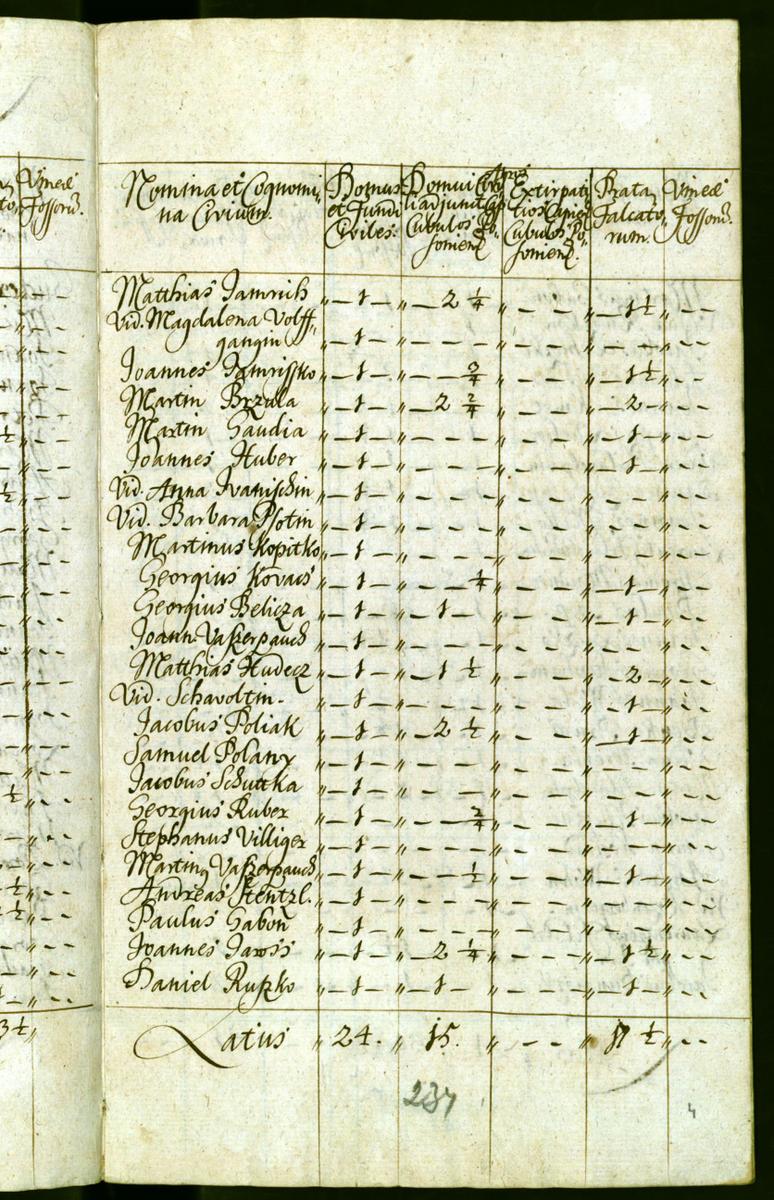 Nomina et Cognomi-
na Civium.
Domus
et Fundi
Civiles.
Domui Civi
li adjuncti
Cubulos Po-
sonien
Extirpati
tios
Cubulos Po-
sonien
Prata
Falcato-
rum.
Vineæ
Fossorũ.
Matthias Jamrich „ – 1 – „ – 2 ¼ „ – – – „ – 1½ „ – –
Vid. Magdalena Volff-
gangin „ – 1 – „ – – – „ – – – „ – – – „ – –
Joannes Jamrissko „ – 1 – „ – – ¾ „ – – – „ – 1½ „ – –
Martin Brzula „ – 1 – „ – 2 2/4 „ – – – „ – 2 – „ – –
Martin Gaudia „ – 1 – „ – – – „ – – – „ – 1 – „ – –
Joannes Huber „ – 1 – „ – – – „ – – – „ – 1 – „ – –
Vid. Anna Ivanischin „ – 1 – „ – – – „ – – – „ – – – „ – –
Vid. Barbara Psotin „ – 1 – „ – – – „ – – – „ – – – „ – –
Martinus Kopitko „ – 1 – „ – – – „ – – – „ – – – „ – –
Georgius Kovacs „ – 1 – „ – – ¼ „ – – – „ – 1 – „ – –
Georgius Belicza „ – 1 – „ – 1 – „ – – – „ – 1 – „ – –
Joann Vaszerpauch „ – 1 – „ – – – „ – – – „ – – – „ – –
Matthias Hudecz „ – 1 – „ – 1 ½ „ – – – „ – 2 – „ – –
Vid. Schavoltin. „ – 1 – „ – – – „ – – – „ – 1 – „ – –
Jacobus Poliak „ – 1 – „ – 2 ½ „ – – – „ – 1 – „ – –
Samuel Polany „ – 1 – „ – – – „ – – – „ – – – „ – –
Jacobus Schuttka „ – 1 – „ – – – „ – – – „ – – – „ – –
Georgius Ruber „ – 1 – „ – – 2/4 „ – – – „ – 1 – „ – –
Stephanus Villiger „ – 1 – „ – – – „ – – – „ – – – „ – –
Martinꝰ Vaszerpauch „ – 1 – „ – – ½ „ – – – „ – 1 – „ – –
Andreas Stentzl. „ – 1 – „ – – – „ – – – „ – – – „ – –
Paulus Gabon „ – 1 – „ – – – „ – – – „ – – – „ – –
Joannes Jaross „ – 1 – „ – 2 ¼ „ – – – „ – 1½ „ – –
Daniel Ruszko „ – 1 – „ – 1 – „ – – – „ – 1 – „ – –
Latus „ 24. „ 15. „ – – „ 17 ½ „ – –
237
Vineæ
Fossorũ.